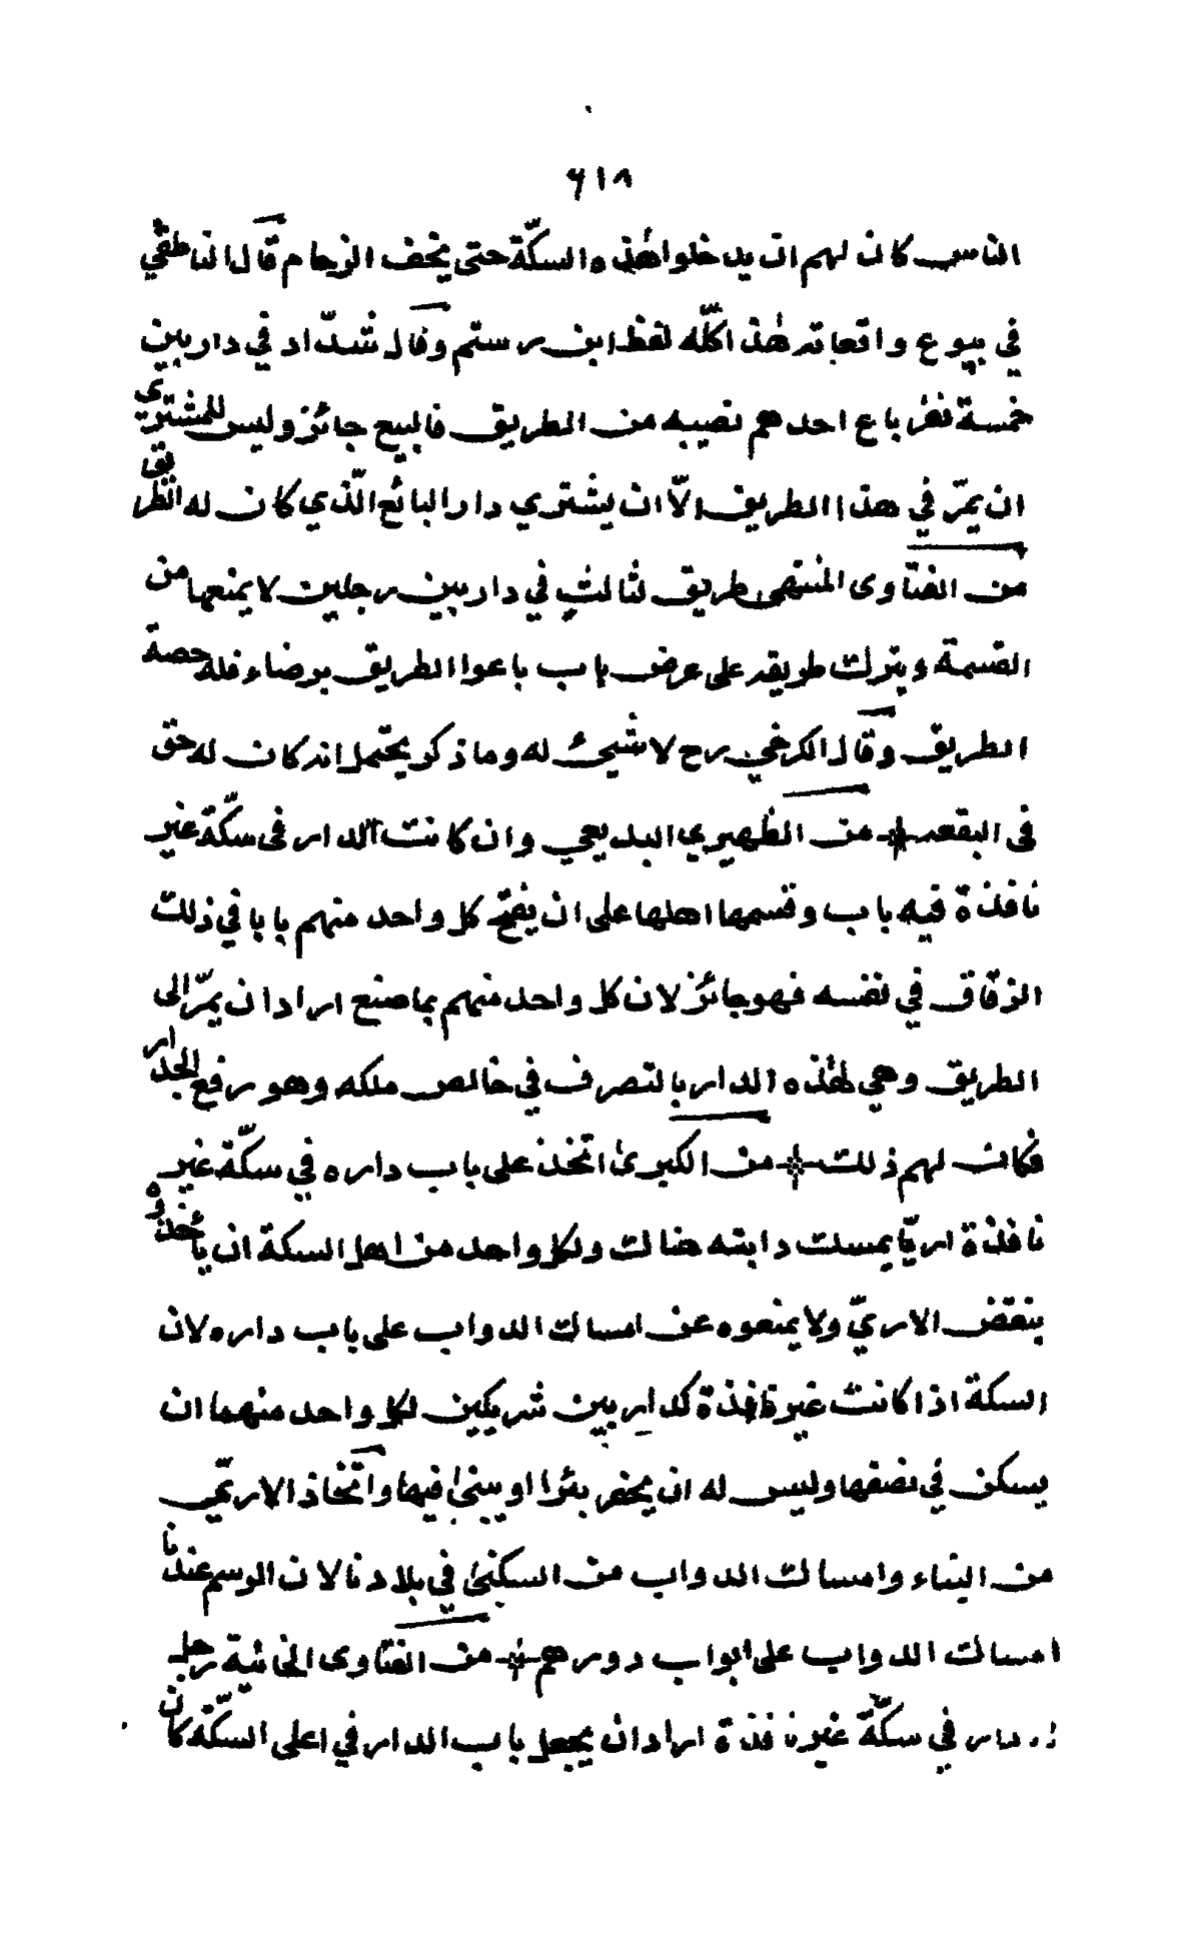 ٦١٨
الناس كان لهم ان يدخلوا هٰذه السكّة حتى يخف الزحام قال الناطقي
في بيوع واقعاته هٰذا كلّه لفظ ابن رستم وقال شدّاد في دار بين
خمسة نفر باع احدهم نصيبه من الطريق فالبيع جائز وليس للمشتري
ان يمرّ في هذا الطريق الّا ان يشتري دار البائع الّذي كان له الطريق
من الفتاوى المنتهى طريق لثالث في دار بين رجلين لا يمنعها من
القسمة ويترك طريقه على عرض باب باعوا الطريق برضاء فله حصة
الطريق وقال الكرخي رح لا شيئ له وما ذكر يحتمل انه كان له حق
في البقعه من الظهيري البديعي وان كانت الدار في سكّة غير
نافذة فيه باب وقسمها اهلها على ان يفتح كل واحد منهم بابا في ذلك
الزقاق في نفسه فهو جائز لان كل واحد منهم بما صنع اراد ان يمرّ الى
الطريق وهي هٰذه الدار بالتصرف في خالص ملكه وهو رفع الجدار
فكان لهم ذلك من الكبرىٰ اتخذ على باب داره في سكّة غير
نافذة اريّا يمسك دابته هنالك ولكل واحد من اهل السكة ان يأخذوه
بنقض الاريّ ولا يمنعوه عن امساك الدواب على باب داره لان
السكة اذا كانت غير نافذة كدار بين شريكين لكل واحد منهما ان
يسكن في نصفها وليس له ان يحفر بئرا او يبنىٰ فيها واتّخاذ الاريّ
من البناء وامساك الدواب من السكنىٰ في بلادنا لان الرسم عندنا
امساك الدواب على ابواب دورهم من الفتاوى الخانية رجل
دار في سكّة غير نافذة اراد ان يجعل باب الدار في اعلى السكّة كان